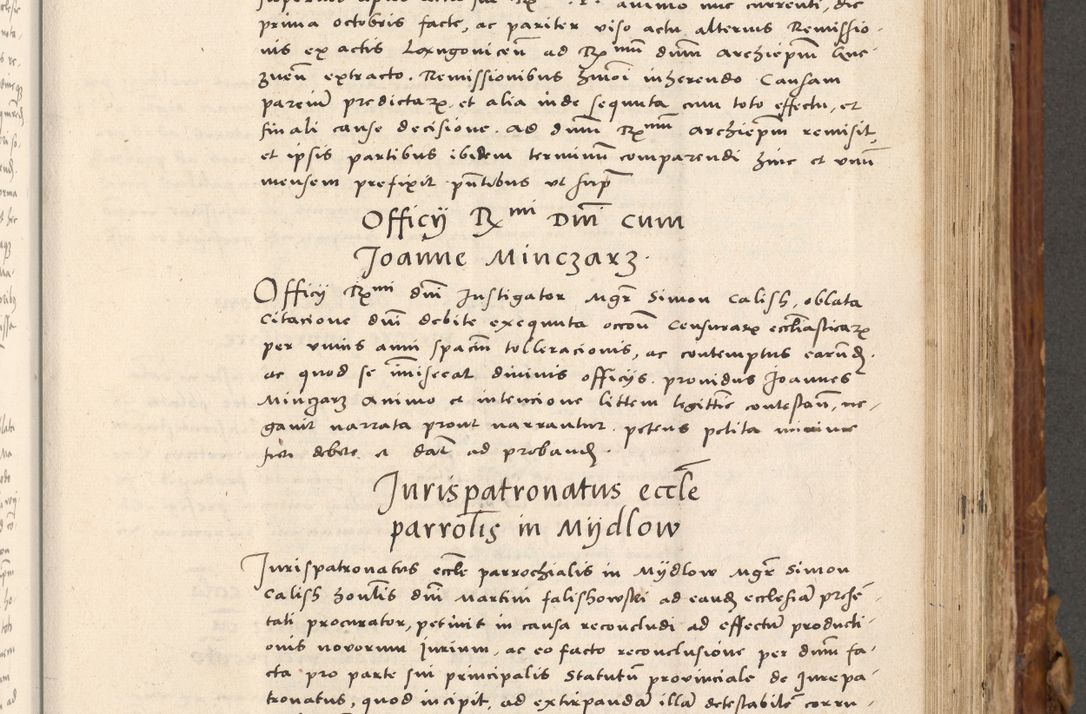 prima octobris facte, ac pariter viso actu alterius Remissio-
nis ex actis Lexngonicen̄ ad Rx̄mum dnūm Archiepm̄ Gne-
znen̄ extracto. Remissionibus hm̄oi inherendo Causam
pareiuꝫ predictarꝝ. et alia inde sequuta cum toto effectu, et
finali cause decisione. Ad dnūm Rx̄mum Archiepm̄ remisit,
et ipsis partibus ibidem terminū comparendi hinc et vnū
mensem prefixit pn̄tibus vt supꝰ
Officij Rx̄mi Dnī cum
Joanne Minczarz.
Officij Rx̄mi dnī Instigator Mgr̄ Simon Calish, oblata
Citacione dnī debite exequuta occōn̄ Censurarꝝ ecclīasticarꝝ
per vnius anni spacīm tolleracionis, ac contemptus earundꝫ.
ac quod se īmisceat diuinis officijs. prouidus Joannes
Minczarz Animo et intencione littem legittīe contestan̄, ne-
gauit narrata prout narrantur. petens petita minime
fieri debere. et datꝰ ad probandꝫ.
Jurispatronatus eccle
parrolīs in Mÿdlow
Jurispatronatus eccle parrochialis in Mÿdlow Mgr̄ Simon
Calish honlīs dnī Martini falishowski ad eandꝫ ecclesiā prese-
tati procurator, petiuit in causa reconcludi ad effectū producti-
onis nouorum Jurium, ac eo facto reconclusione per dnūm fa-
cta pro parte sui principalis Statutū prouinciale de Jurepa-
tronatus, quod incipit, ad extirpandā illā detestabilē corru-